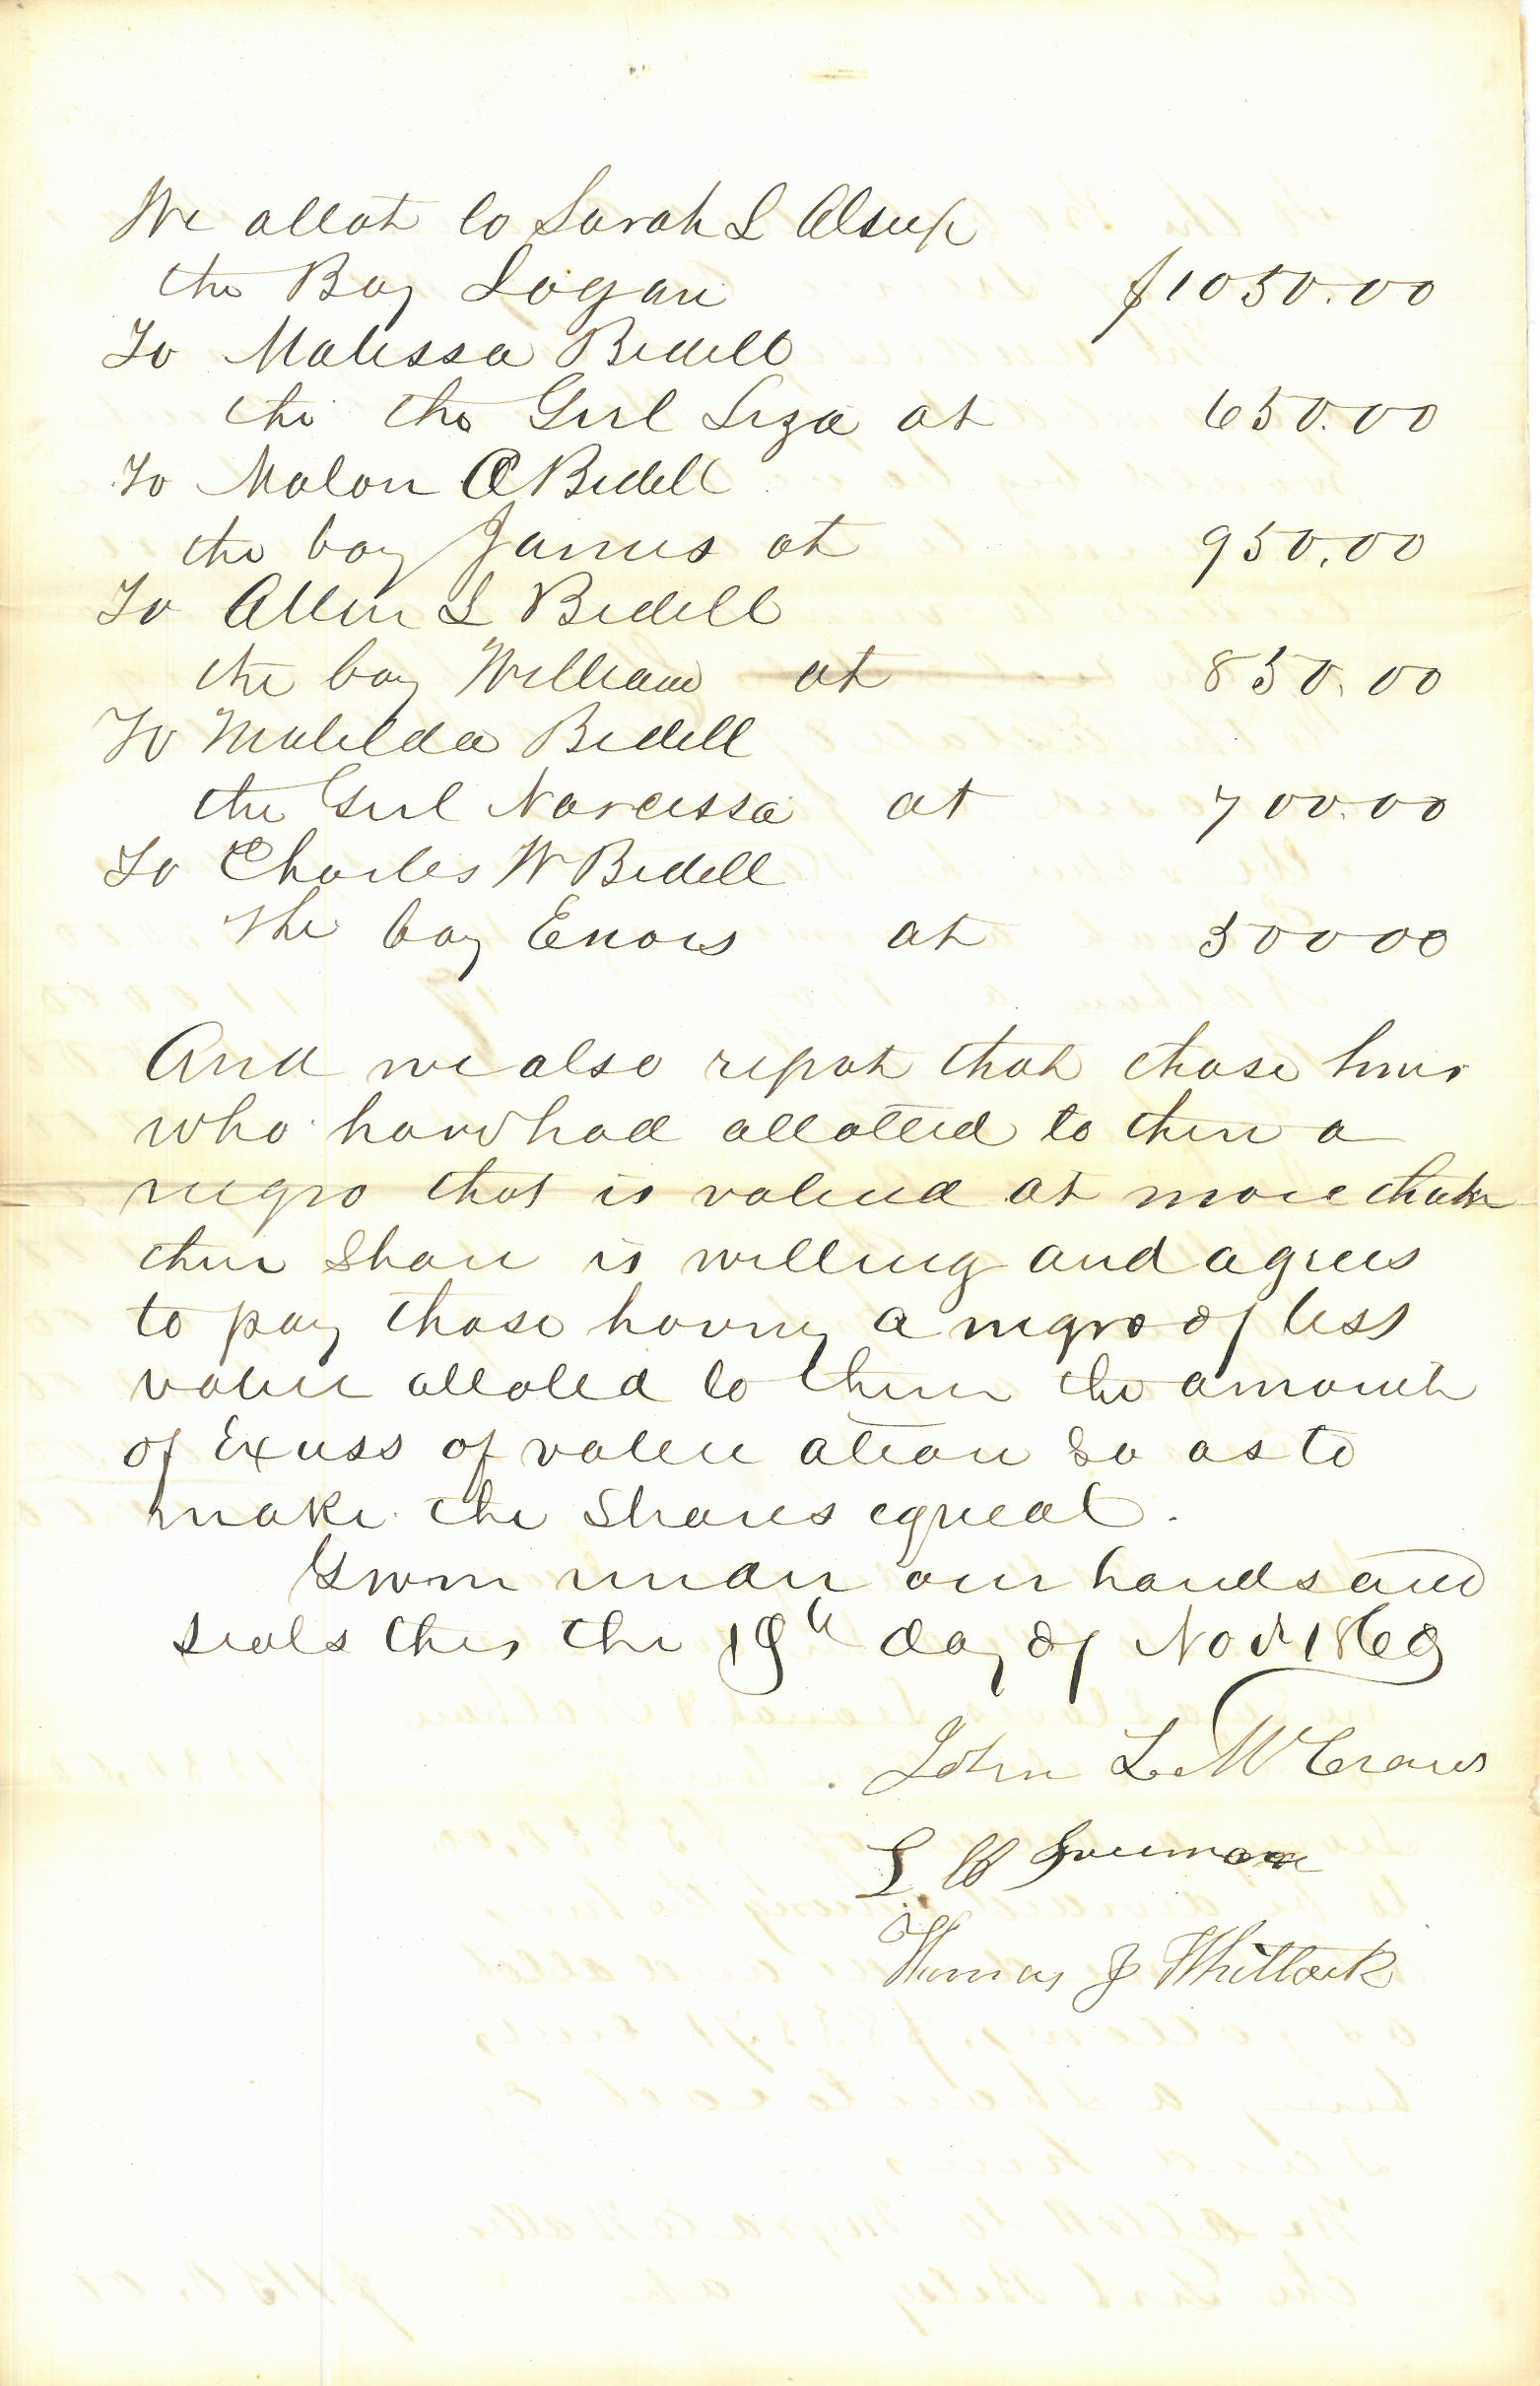 We allot to Sarah L Alsup
the Boy Logan $1050.00
To Malissa Bedell
the the Girl Liza at 650.00
To Malon C Bedell
the boy James at 950.00
To Allen L Bedell
the boy William at 850.00
To Matilda Bedell
the Girl Narcissa at 700.00
To Charles W Bedell
the boy Enous at 50000
And we also repot that those heirs
who have had allotted to them a
negro that is valued at more than
their Share is willing and agrees
to pay those having a negro of less
value alloted to them the amount
of Excess of value ation so as to
make the Shares equeal.
Given under our hands and
seals this the 19th day of Nov 1860
John L McCraws
L W Freeman
Thomas J Whitlock